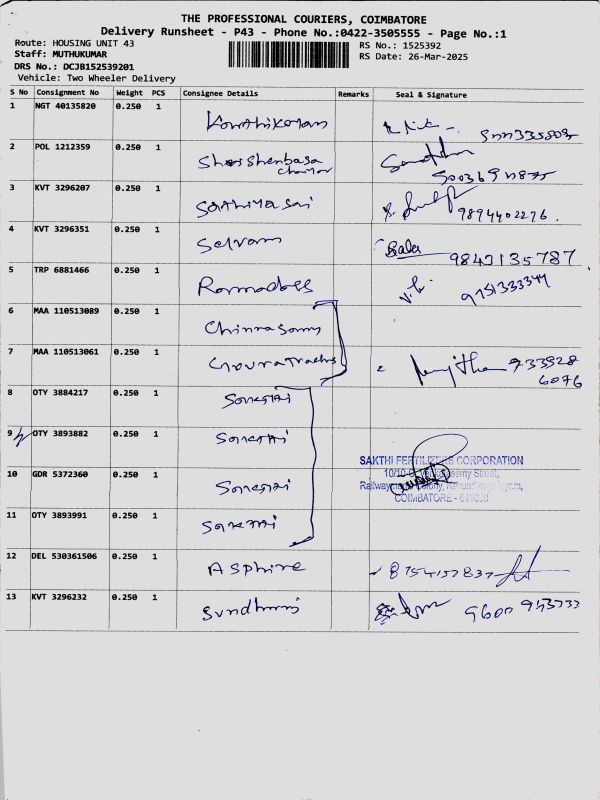 THE PROFESSIONAL COURIERS, COIMBATORE
Delivery Runsheet - P43 - Phone No.:0422-3505555 - Page No.:1
Route: HOUSING UNIT 43
RS No.: 1525392
Staff: MUTHUKUMAR
RS Date: 26-Mar-2025
DRS No.: DCJB152539201
Vehicle: Two Wheeler Delivery
S No Consignment No Weight PCS Consignee Details Remarks Seal & Signature
1 NGT 40135820 0.250 1
2 POL 1212359 0.250 1
3 KVT 3296207 0.250 1 Sathiya Sai 9894402276.
4 KVT 3296351 0.250 1 Selvam Bala 9843135787
5 TRP 6881466 0.250 1 Ramadoss 9751333344
6 MAA 110513089 0.250 1 Chinnasamy
7 MAA 110513061 0.250 1 733928
6076
8 OTY 3884217 0.250 1
9 OTY 3893882 0.250 1
SAKTHI FERTILIZERS CORPORATION
10 GDR 5372360 0.250 1
COIMBATORE - 641
11 OTY 3893991 0.250 1
12 DEL 530361506 0.250 1 Asphire 8754157837
13 KVT 3296232 0.250 1 9600